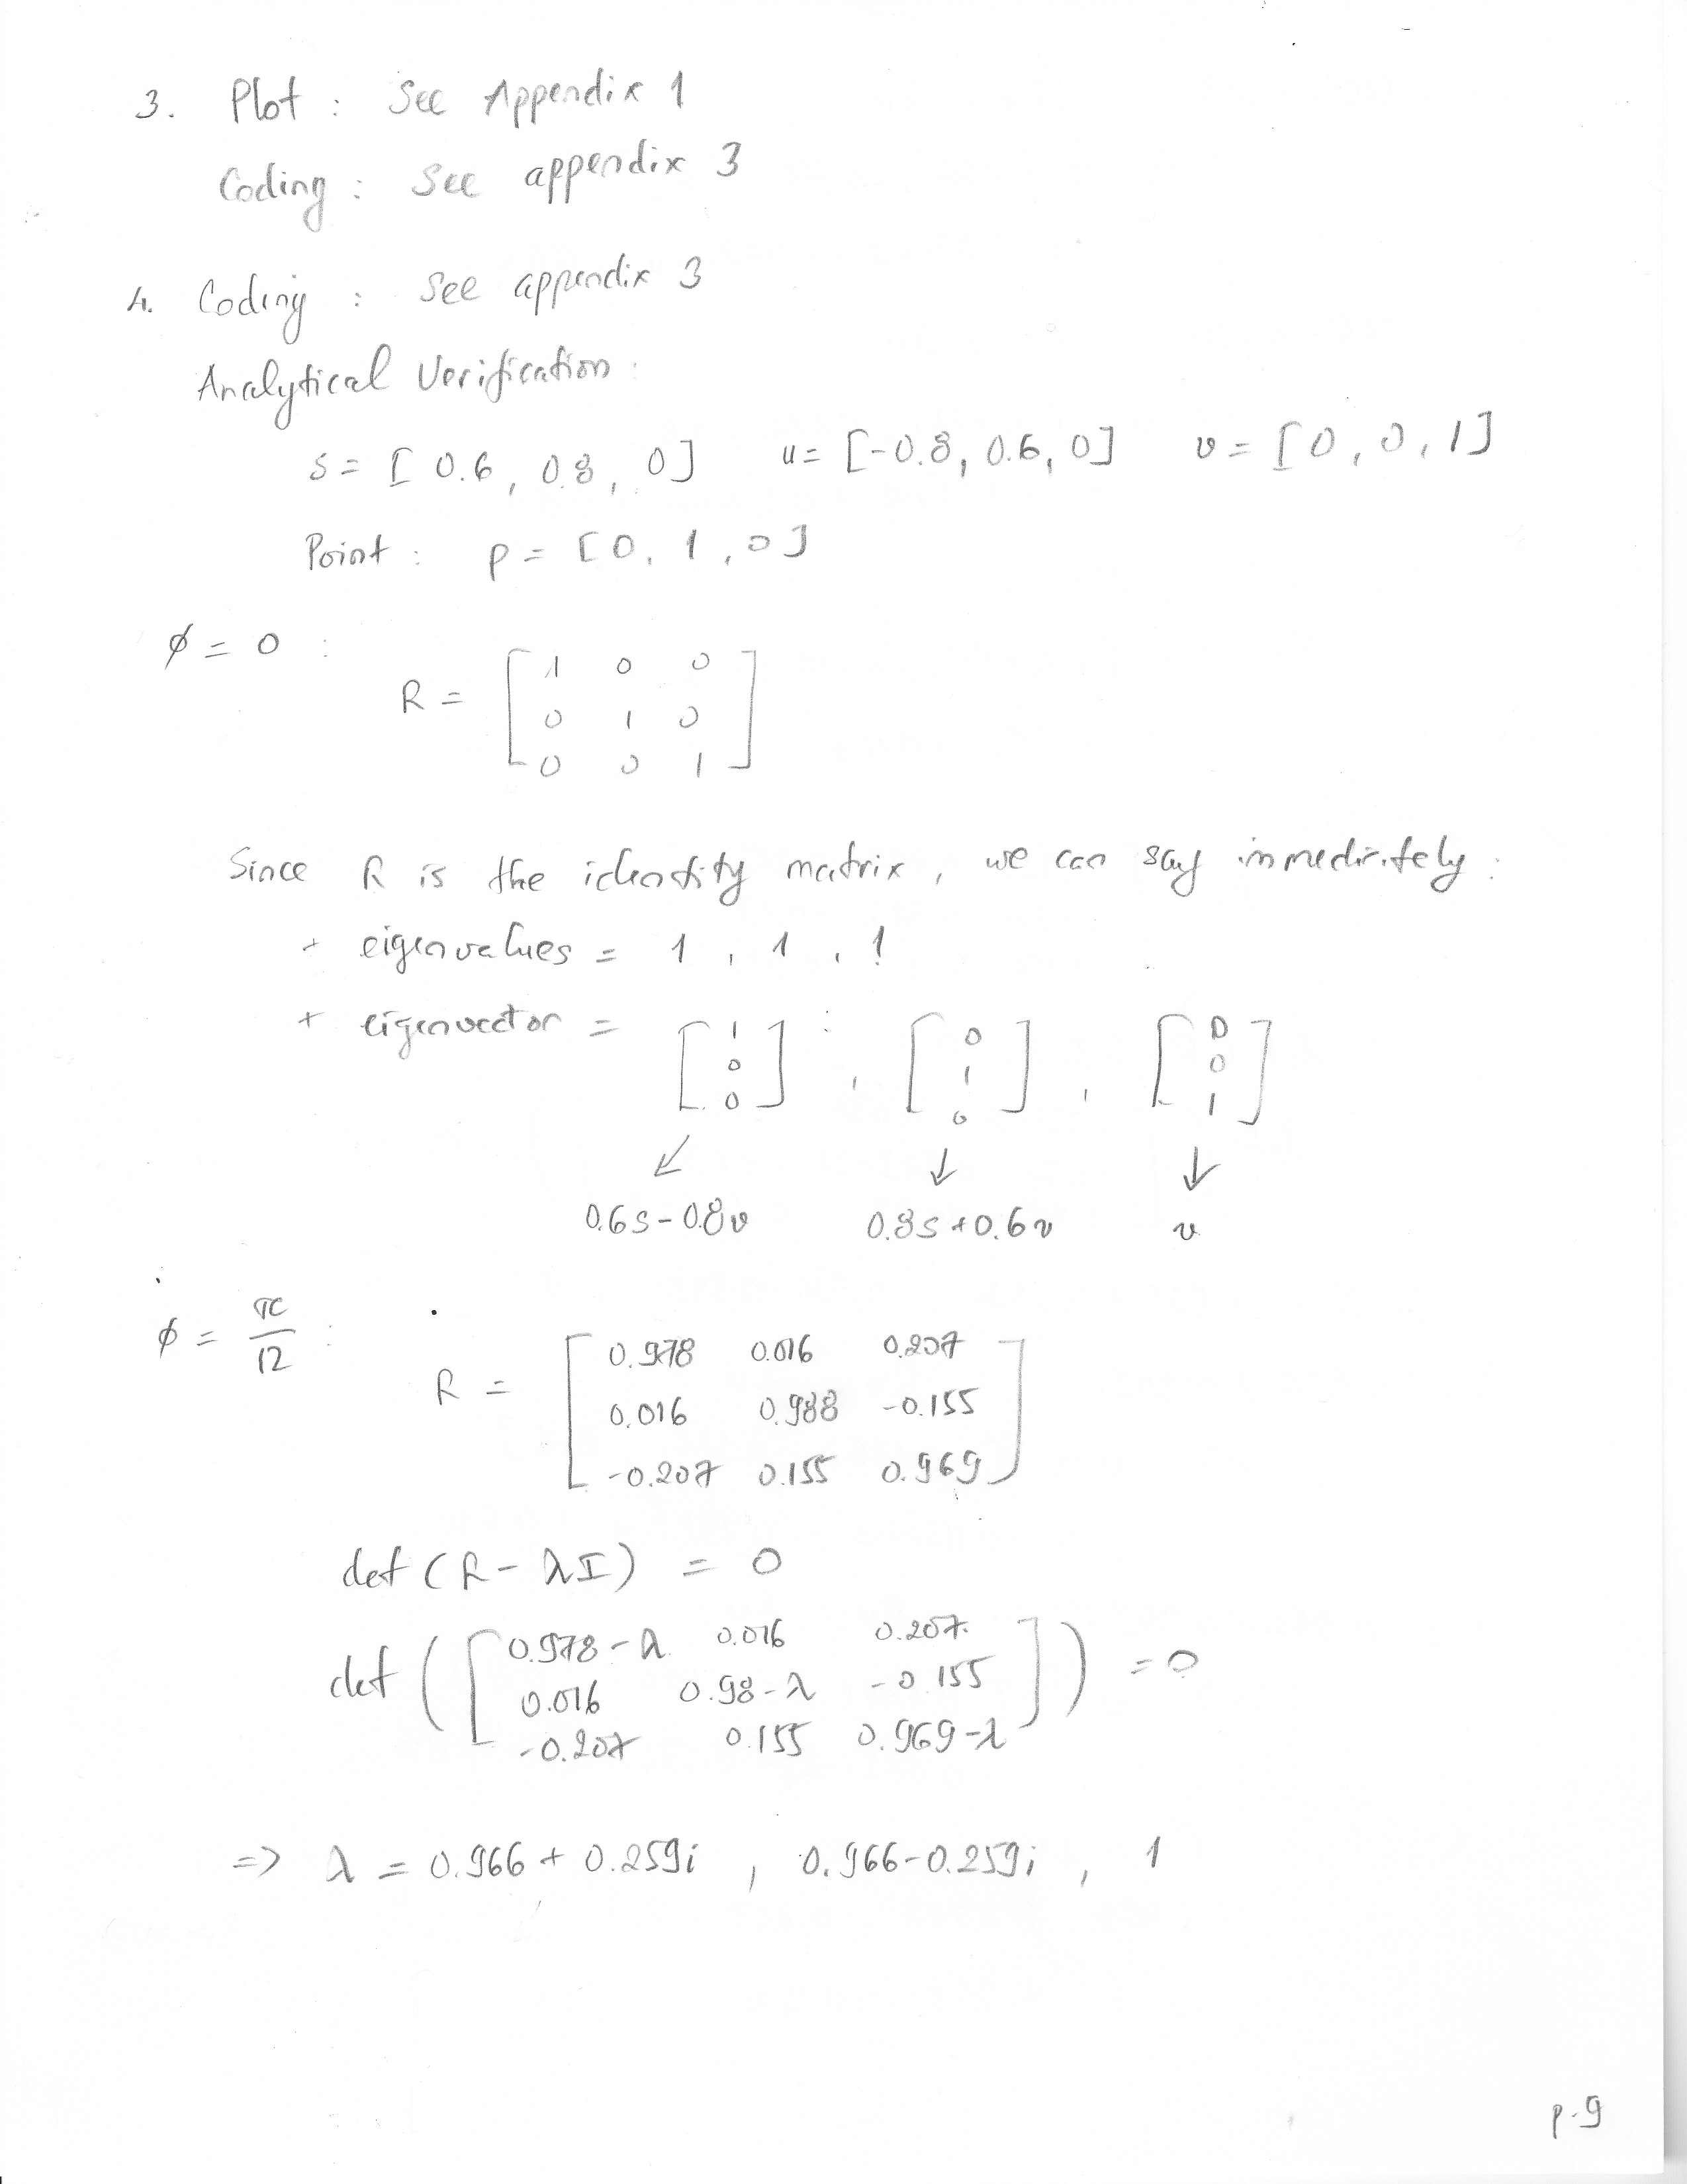 3. Plot : See Appendix 1
Coding : See appendix 3
4. Coding : See appendix 3
Analytical Verification :
s = [ 0.6 , 0.8 , 0] u = [-0.8, 0.6, 0] v = [0, 0, 1]
Point : p = [0, 1, 0]
ϕ = 0 :
R = [ 1 0 0
0 1 0
0 0 1 ]
Since R is the identity matrix, we can say immediately :
+ eigenvalues = 1 , 1 , 1
+ eigenvector = [1 0 0] , [0 1 0] , [0 0 1]
↙ ↓ ↓
0.6s-0.8v 0.8s+0.6v v
ϕ = π/12 :
R = [ 0.978 0.016 0.207
0.016 0.988 -0.155
-0.207 0.155 0.969 ]
det (R - λI) = 0
det ( [ 0.978-λ 0.016 0.207
0.016 0.98-λ -0.155
-0.207 0.155 0.969-λ ] ) = 0
=> λ = 0.966 + 0.259i , 0.966-0.259i , 1
p.9